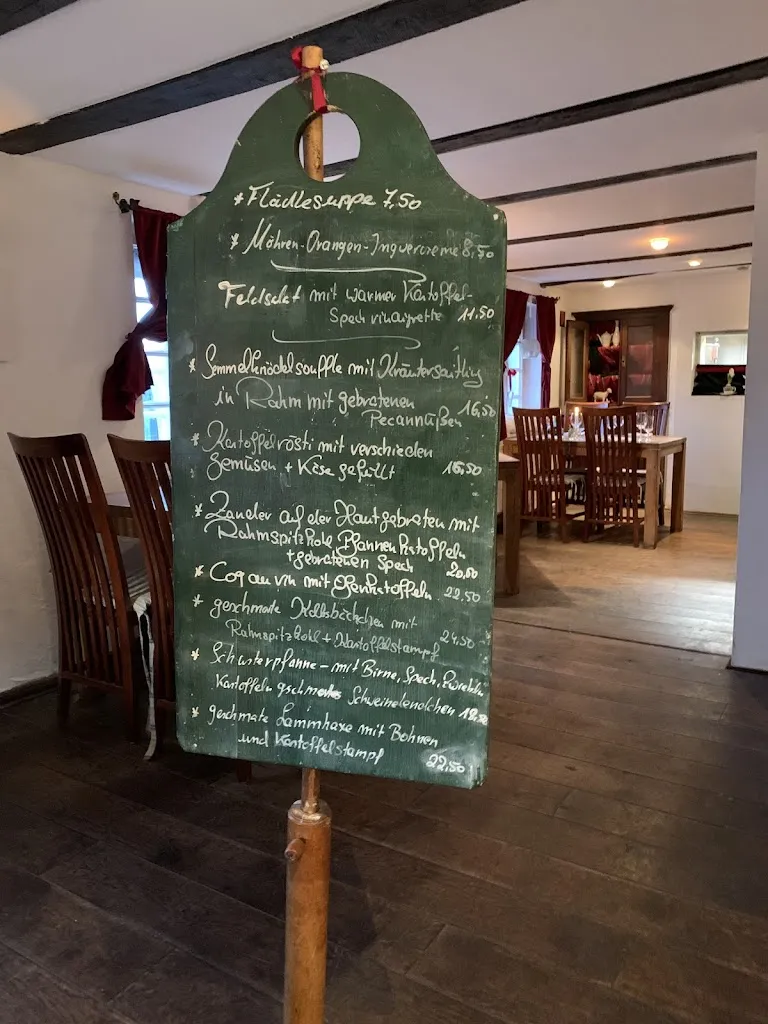 * Flädlesuppe 7,50
* Möhren-Orangen-Ingwercreme 8,50
Feldsalat mit warmer Kartoffel-
Speck vinaigrette 11.50
* Semmelknödelsouffle mit Kräutersaitling
in Rahm mit gebratenen
Pecannüßen 16,50
* Kartoffelrösti mit verschieden
Gemüsen + Käse gefüllt 16,50
* Zander auf der Haut gebraten mit
Rahmspitzkohl Pfannenkartoffeln
+ gebratenen Speck
* Coq au vin mit Ofenkartoffeln 22,50
* geschmorte Kalbsbäckchen mit
Rahmspitzkohl + Kartoffelstampf 24,50
* Schusterpfanne - mit Birne, Speck, Zwiebeln
Kartoffeln Schweinelendchen
* geschmorte Lammhaxe mit Bohnen
und Kartoffelstampf
22,50